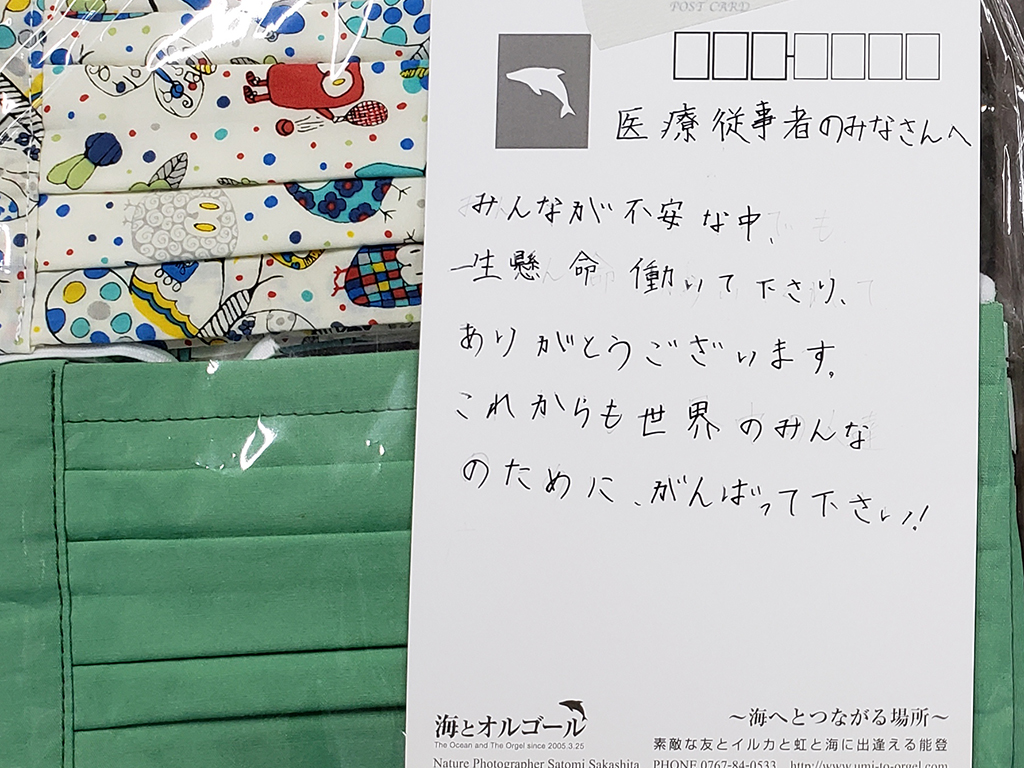 POST CARD
医療従事者のみなさんへ
みんなが不安な中、
一生懸命働いて下さり、
ありがとうございます。
これからも世界のみんな
のために、がんばって下さい!
海とオルゴール
The Ocean and The Orgel since 2005.3.25
Nature Photographer Satomi Sakashita
〜海へとつながる場所〜
素敵な友とイルカと虹と海に出逢える能登
PHONE 0767-84-0533 http://www.umi-to-orgel.com